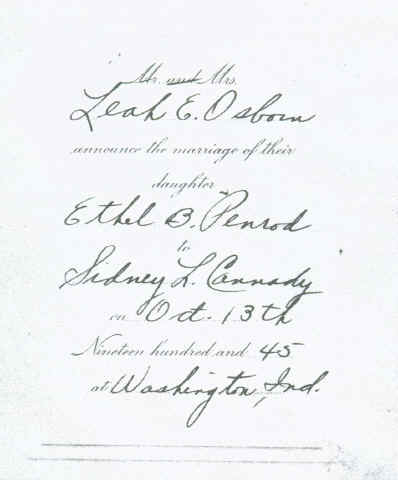 Mr. and Mrs.
Leah E. Osborn
announce the marriage of their
daughter
Ethel B. Penrod
to
Sidney L. Cannady
on Oct. 13th
Nineteen hundred and 45
at Washington, Ind.